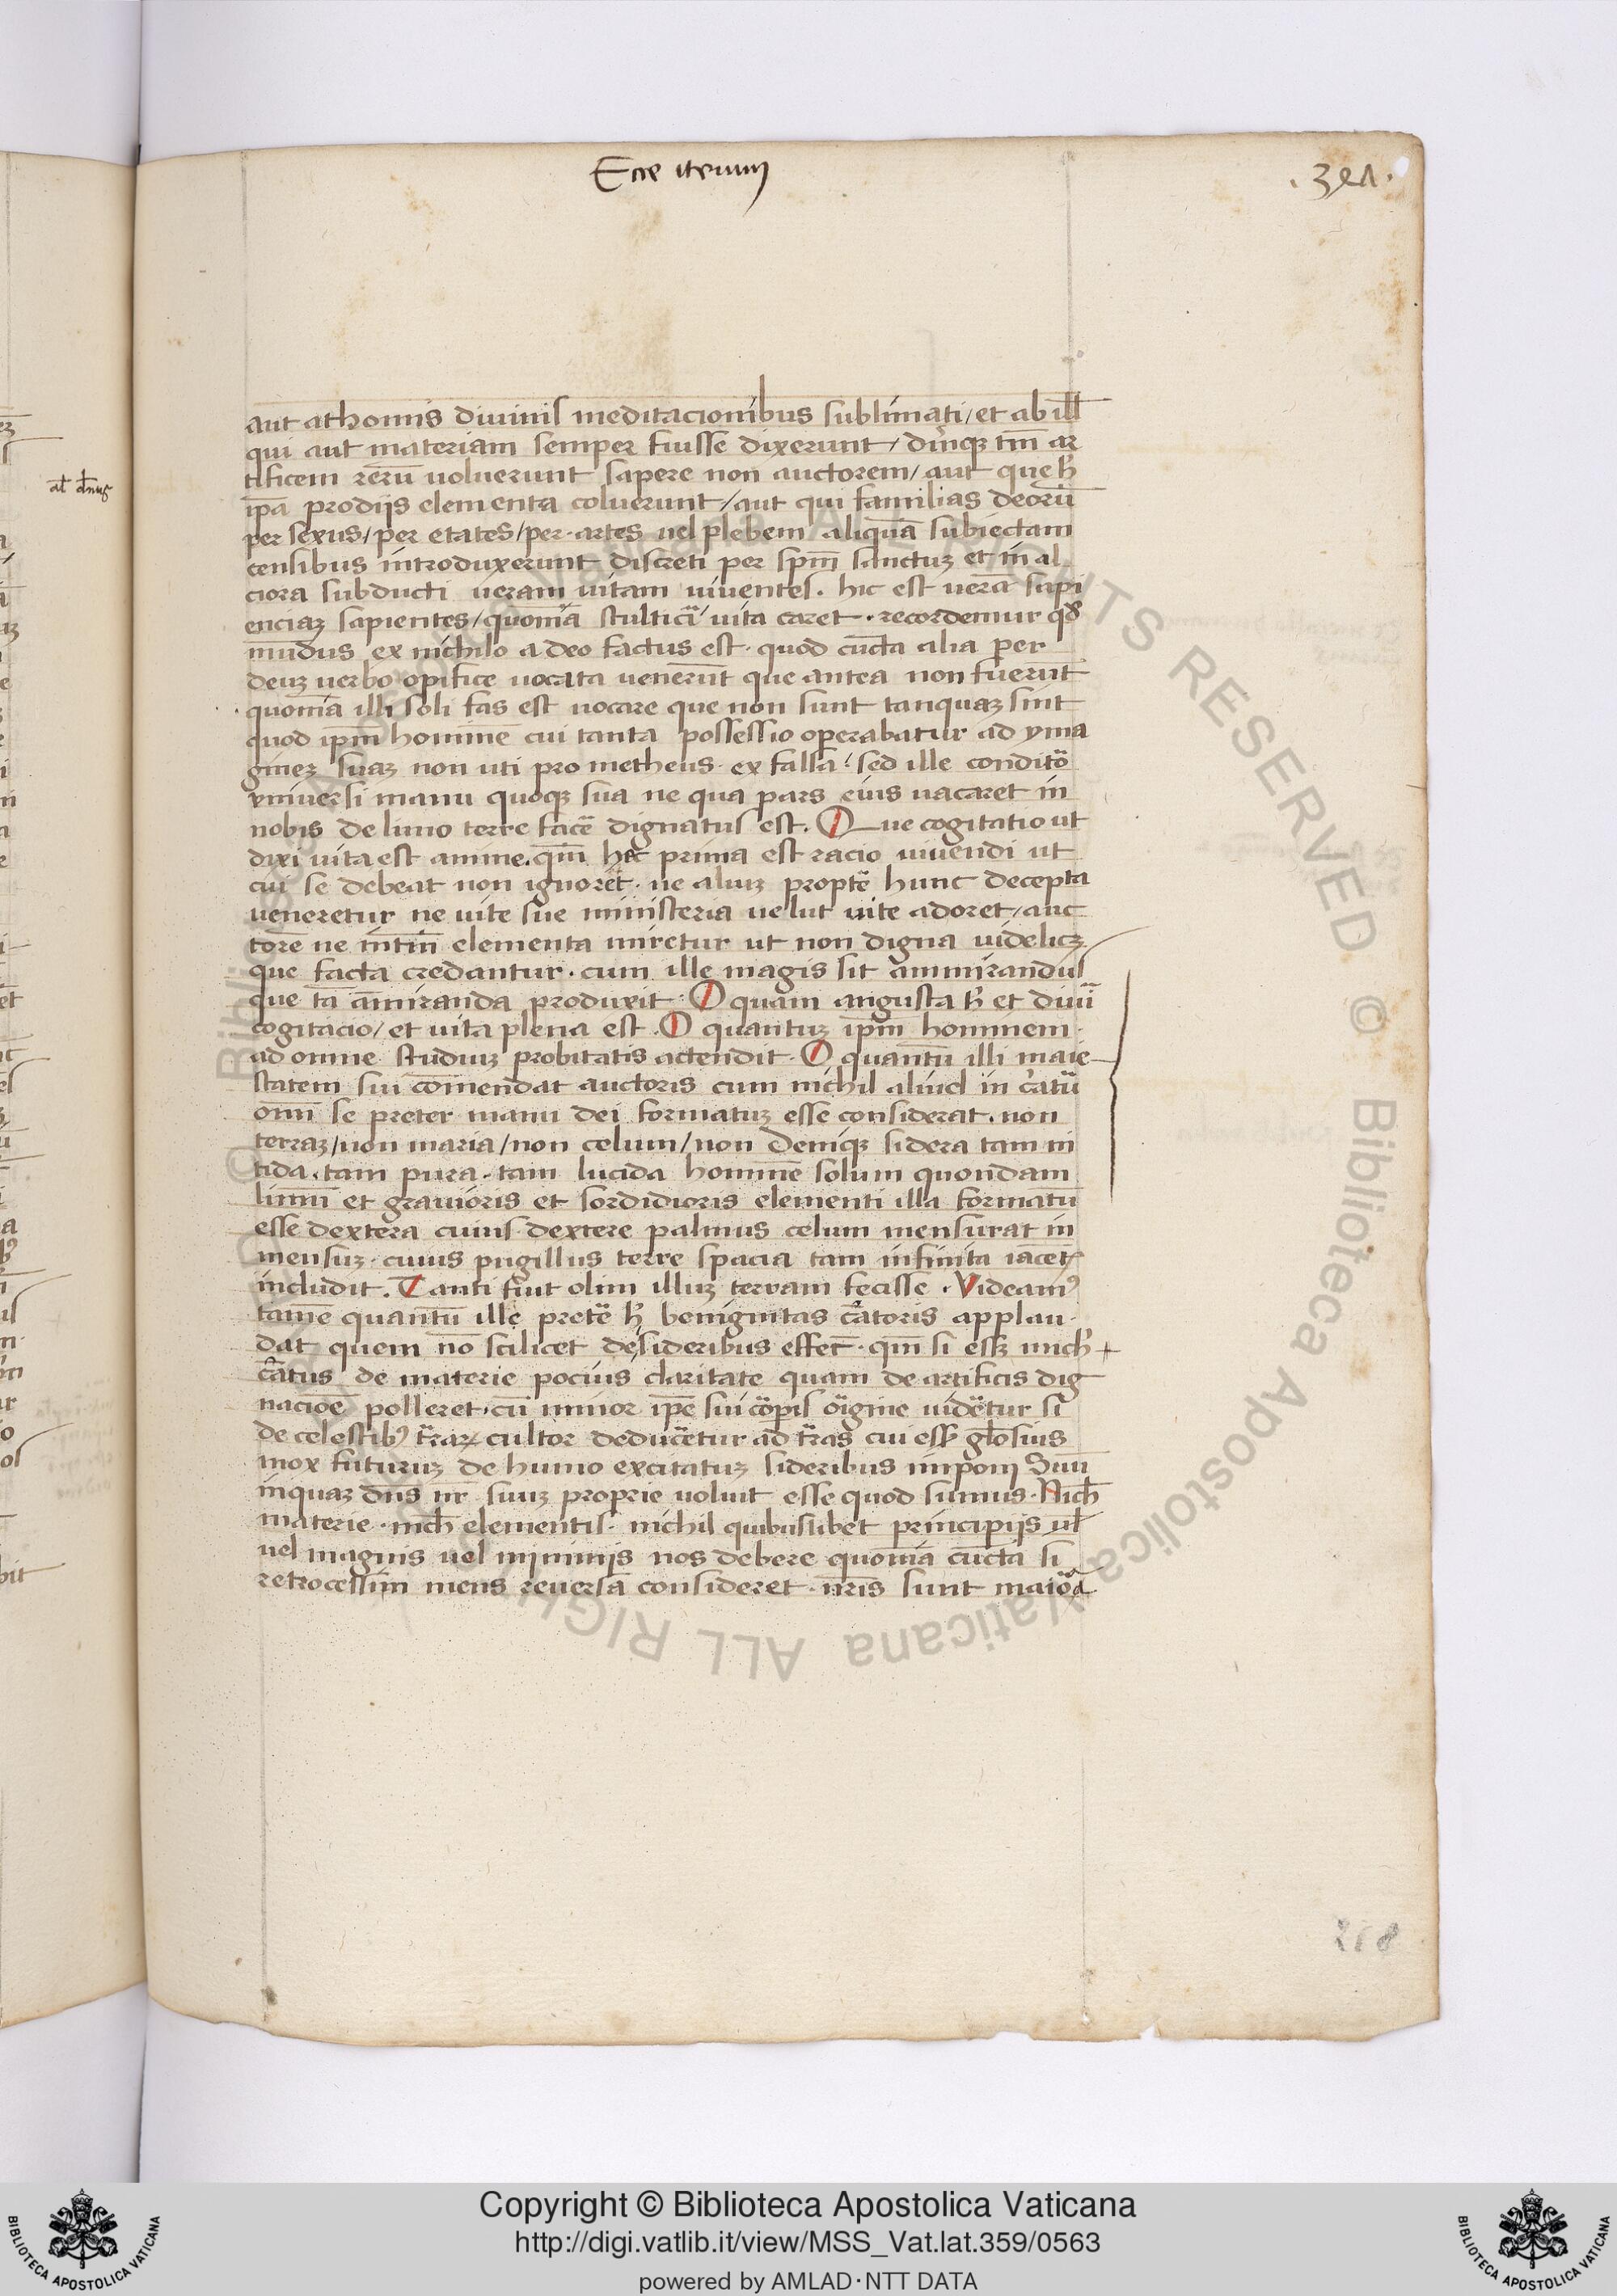 Ecce iterum
.321.
aut athomis diuinis meditacionibus sublimati / et ab ill̅
qui aut materiam semper fuisse dixerunt / du̅mq̨ tm̅ ar
tificem reru̅ uoluerunt sapere non auctorem / aut que
ip̅a prodijs elementa coluerunt / aut qui familias deoru̅
per sexus / per etates / per artes uel plebem aliqua̅ subiectam
censibus introduxerunt discreti per sp̅m sanctuꝫ et in al
ciora subducti ueram uitam uiuentes . hic est uera̅ sapi
enciaꝫ sapientes / quonia̅ stulticia uita caret . recordemur qd̅
mu̅dus ex nichilo a deo factus est . quod cu̅cta alia per
deuꝫ uerbo opifice uocata ueneru̅t que antea non fueru̅t
quonia̅ illi soli fas est uocare que non sunt tanquaꝫ sint
quod ip̅m homine̅ cui tanta possessio operabatur ad yma
gineꝫ suaꝫ non uti prometheus . ex falsa / sed ille condito̅
vniuersi manu quoqꝫ sua ne qua pars eius uacaret in
nobis de limo terre face̅ dignatus est . Que cogitatio ut
dixi uita est anime . qm̅ hec prima est racio uiuendi ut
cui se debeat non ignoret . ne aliuꝫ propte̅ hunc decepta
ueneretur ne uite sue ministeria uelut uite adoret / auc
tore̅ ne in̅tm̅ elementa miretur ut non digna uidelicꝫ
que facta credantur . cum ille magis sit ammirandus
que ta̅ a̅miranda produxit . O quam angusta h̅ et diui̅
cogitacio / et uita plena est . O quantuꝫ ip̅m hominem
ad omne studiuꝫ probitatis actendit . O quantu̅ illi maie
statem sui co̅mendat auctoris cum nichil aliud in c̅atu̅
om̅i se preter manu dei formatuꝫ esse considerat . non
terraꝫ / non maria / non celum / non deniqꝫ sidera tam ni
tida . tam pura . tam lucida homine̅ solum quondam
limu̅ et grauioris et sordidioris elementi illa formatu̅
esse dextera cuius dextere palmus celum mensurat in
mensuꝫ . cuius pugillus terre spacia tam infinita
includit . Tanti fuit olim illuꝫ terram fecisse . Videamꝰ
tame̅ quantu̅ ille prete̅ h̅ benignitas c̅atoris applau
dat quem no̅ scilicet de sideribus effec̅ . qm̅ si
c̅atus de materie pocius claritate quam de artificis dig
nacio̅e polleret . cu̅ minor ip̅e sui co̅pis o̅igine uide̅tur si
de celestibꝰ t̅raꝝ cultor deduce̅tur ad t̅ras cui gl̅osius
mox futuruꝫ de humo excitatuꝫ sideribus imponi Suu̅
inquaꝫ dn̅s nr̅ suuꝫ proprie uoluit esse quod sumus . Nich̅
materie . nich̅ elementis . nichil quibuslibet principijs ul̅
uel magnis uel minimis nos debere quonia̅ cu̅cta si
retrocessim mens reuersa̅ consideret . nr̅is sunt maio̅a
al̅
218
© Biblioteca Apostolica Vaticana ALL RIGHTS RESERVED
© Biblioteca Apostolica Vaticana ALL RIGHTS
Copyright © Biblioteca Apostolica Vaticana
http://digi.vatlib.it/view/MSS_Vat.lat.359/0563
powered by AMLAD·NTT DATA
BIBLIOTECA APOSTOLICA VATICANA
BIBLIOTECA APOSTOLICA VATICANA